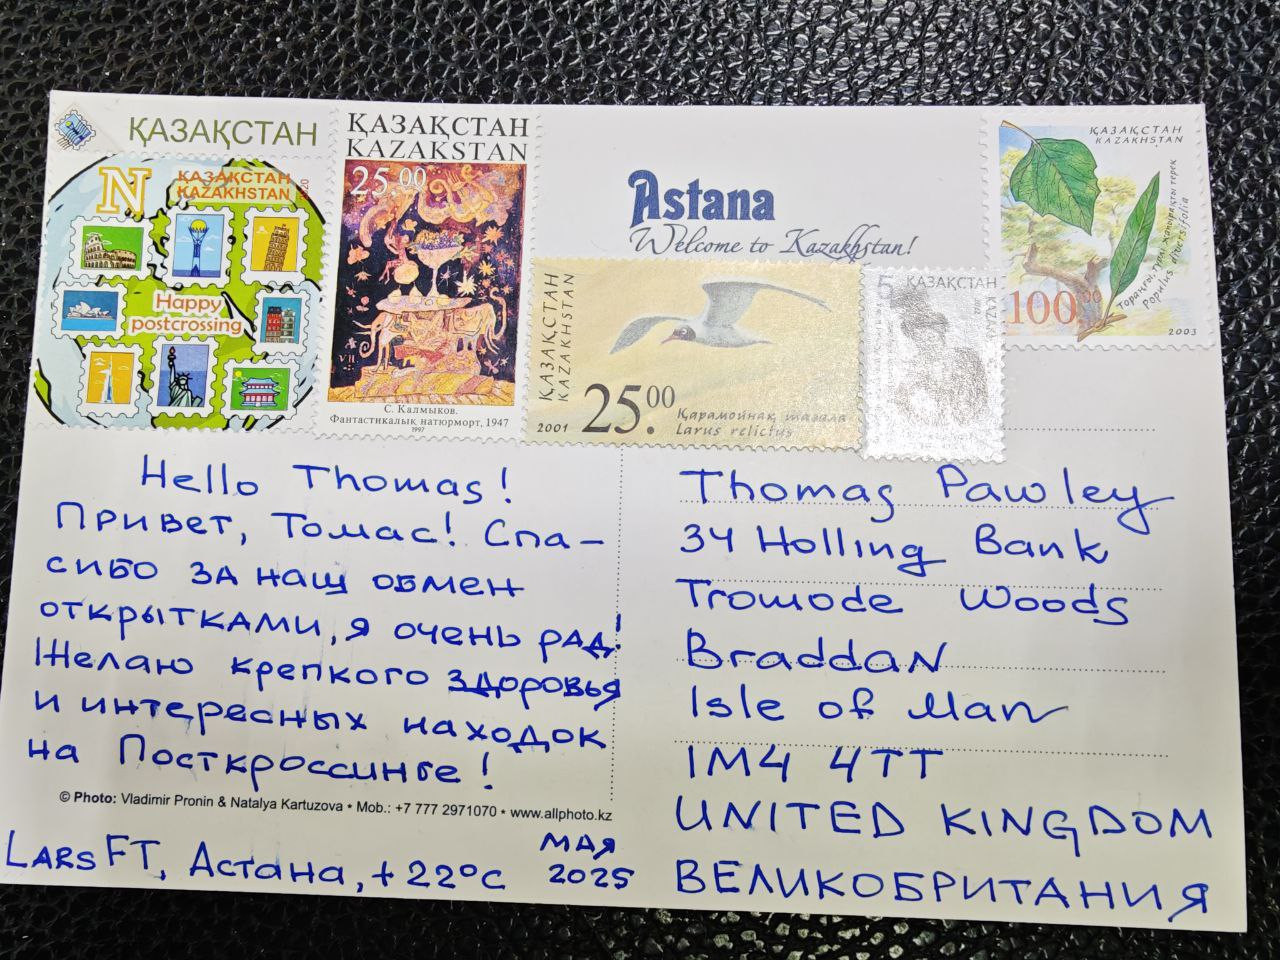 ҚАЗАҚСТАН
N
ҚАЗАҚСТАН
KAZAKHSTAN
Happy
postcrossing
ҚАЗАҚСТАН
KAZAKSTAN
25.00
С. Калмыков.
Фантастикалық натюрморт, 1947
1997
Astana
Welcome to Kazakhstan!
ҚАЗАҚСТАН
KAZAKHSTAN
25.00
2001
Қарамойнақ шағала
Larus relictus
ҚАЗАҚСТАН
ҚАЗАҚСТАН
KAZAKHSTAN
100.00
Тораңғы, түрлі жапырақты терек
Populus diversifolia
2003
Hello Thomas!
Привет, Томас! Спа-
сибо за наш обмен
открытками, я очень рад!
Желаю крепкого здоровья
и интересных находок
на Посткроссинге!
© Photo: Vladimir Pronin & Natalya Kartuzova • Mob.: +7 777 2971070 • www.allphoto.kz
LARS FT, Астана, +22°C
МАЯ
2025
Thomas Pawley
34 Holling Bank
Tromode Woods
Braddan
Isle of Man
IM4 4TT
UNITED KINGDOM
ВЕЛИКОБРИТАНИЯ